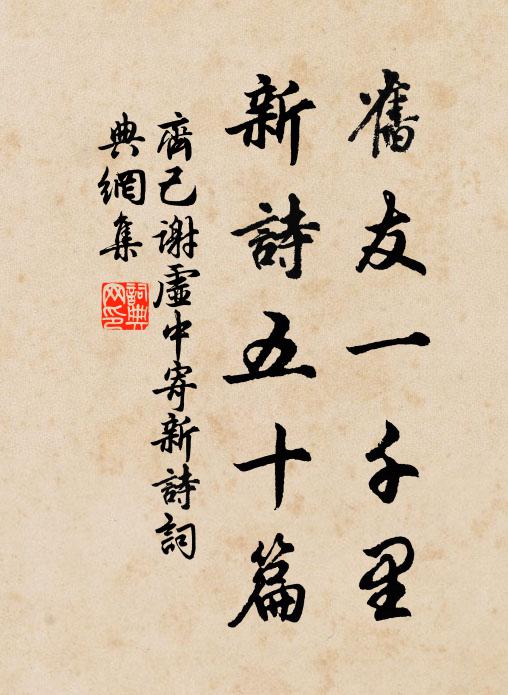 舊友一千里
新詩五十篇
齊己謝虛中寄新詩詞
典網集
詞典
网印